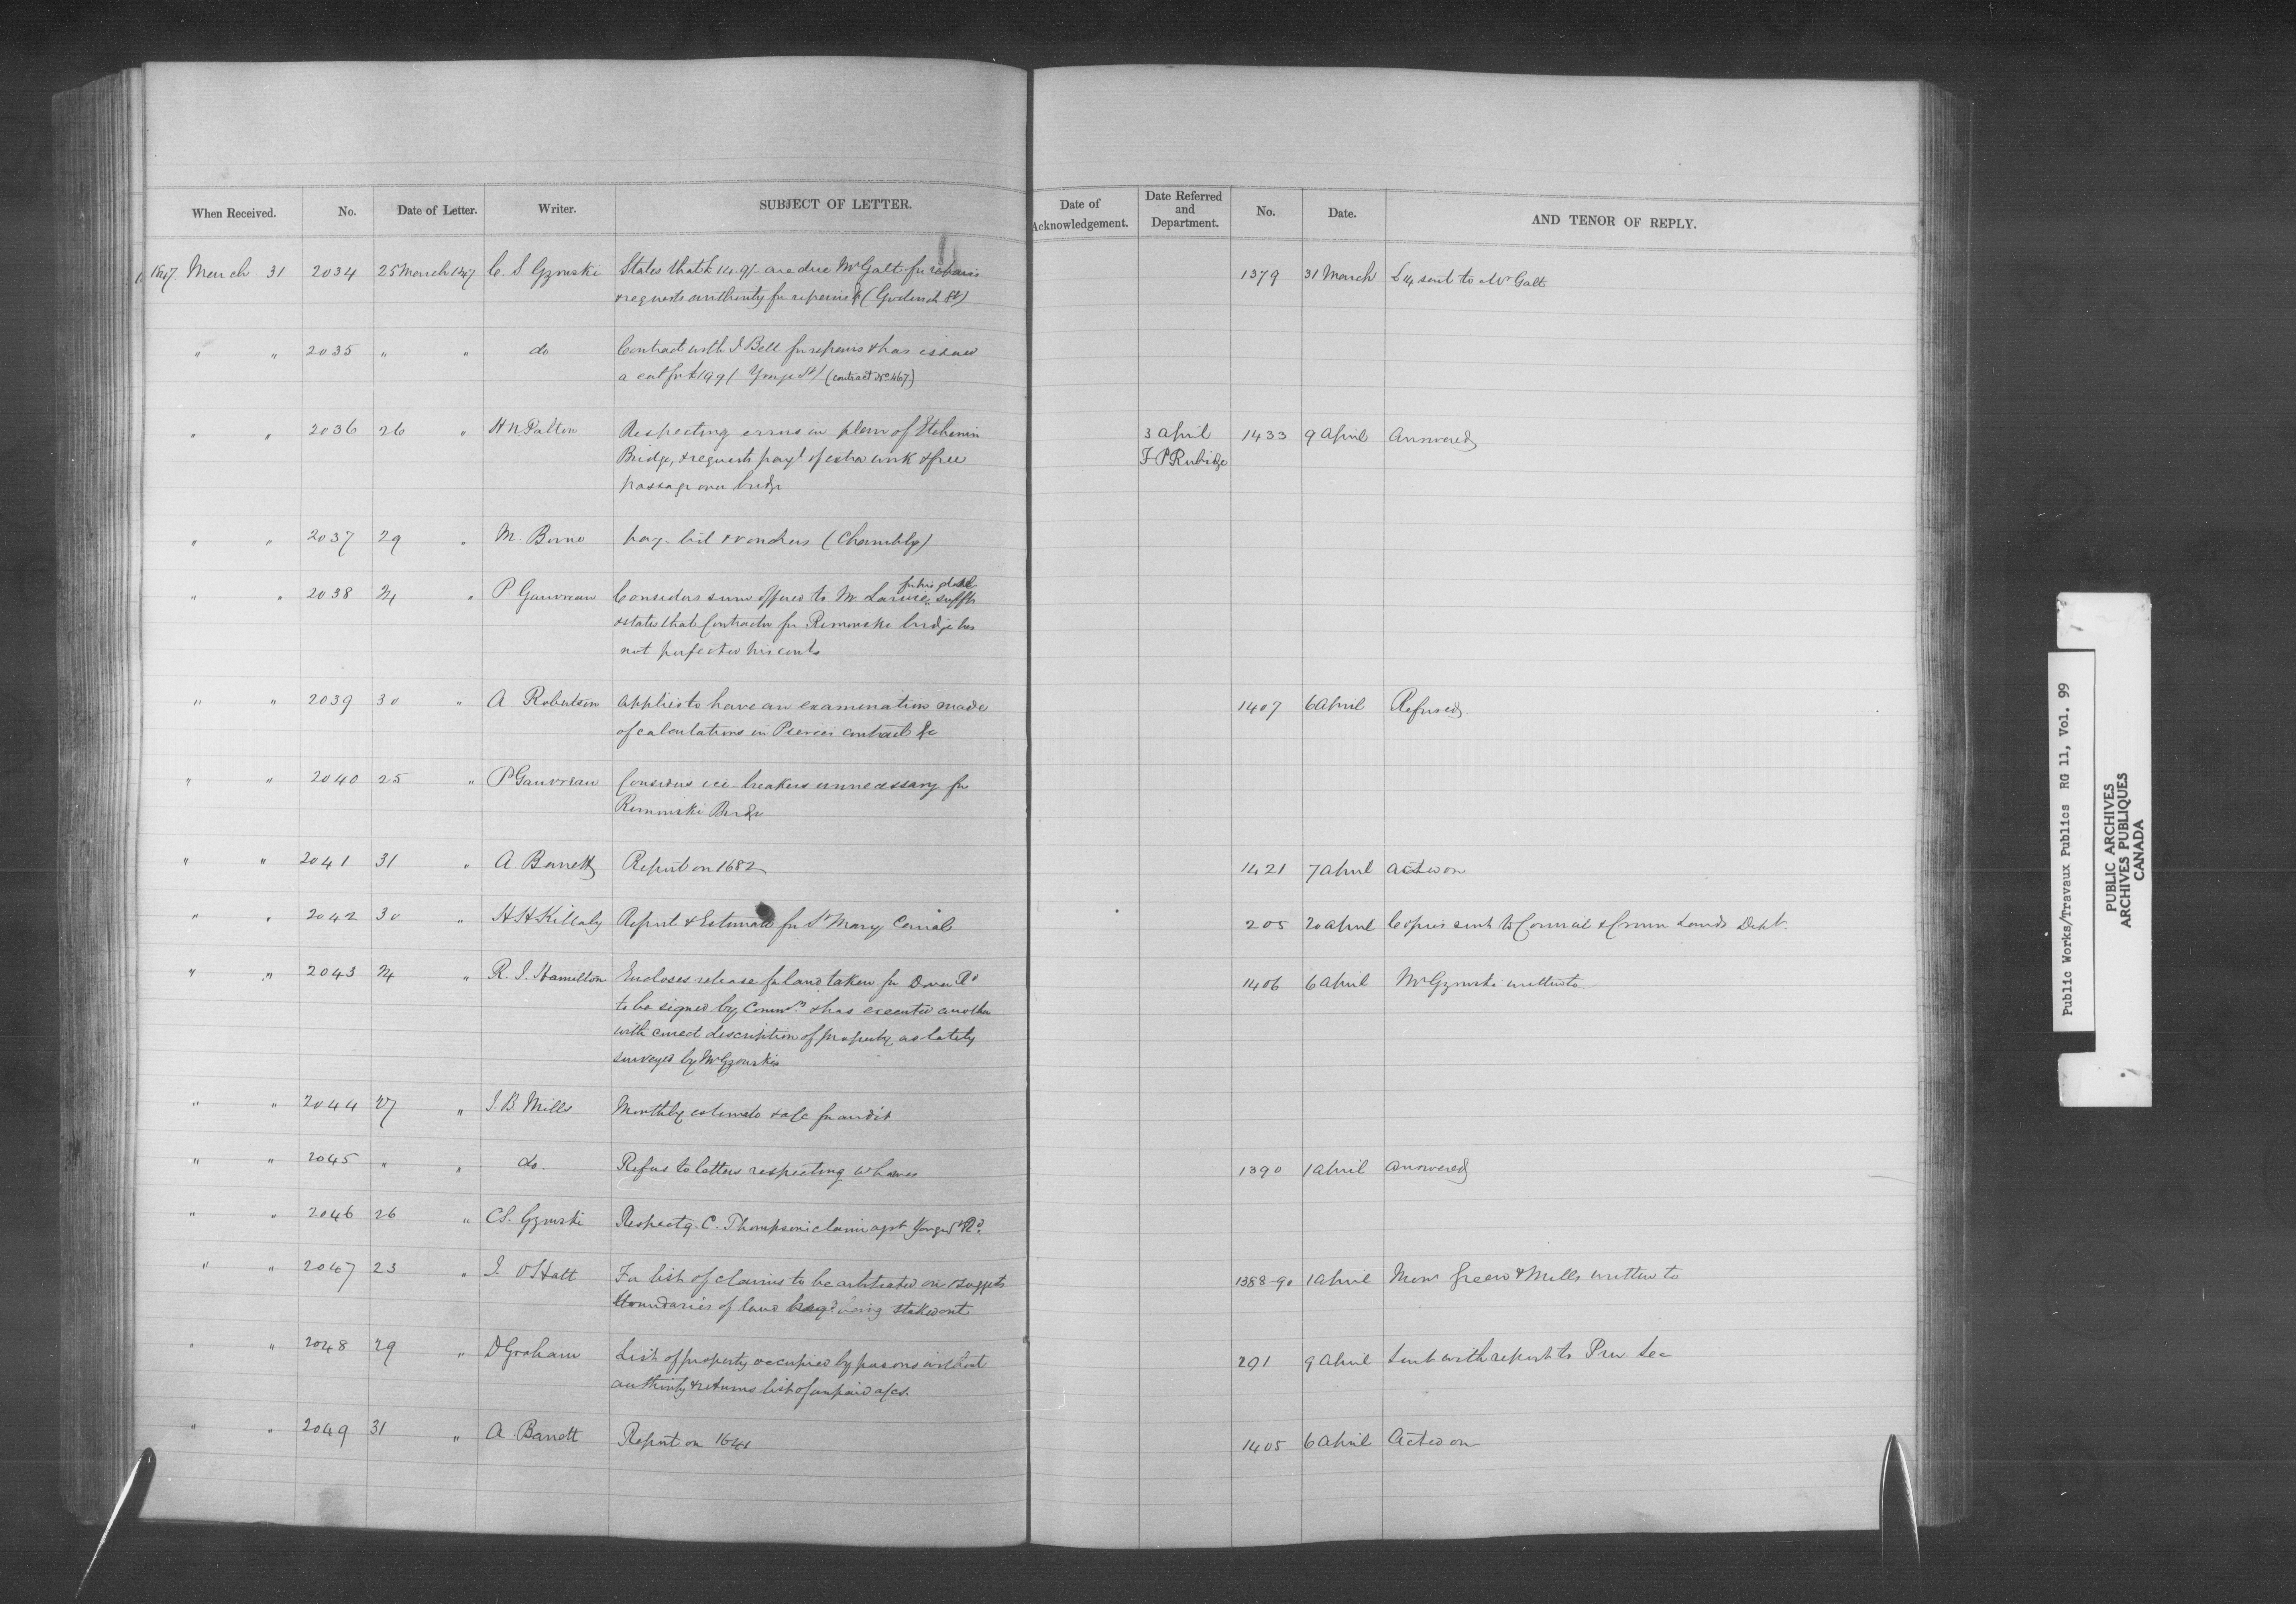 When Received. No. Date of Letter. Writer. SUBJECT OF LETTER. Date of Acknowledgement. Date Referred and Department. No. Date. AND TENOR OF REPLY.
1847 March 31 2034 25 March 1847 C. S. Gzowski States that £ 14.9/- are due Mr Galt for repairs 1379 31 March sent to Mr Galt
& requests authority for repairs (Goderich St)
" " 2035 " " do Contract with J Bell for repairs & has issued
a cert for £199/ Yonge St/ (contract No 467)
" " 2036 26 " H N Patton Respecting errors in plan of Etchemin 3 April 1433 9 April Answered
Bridge, & requests payt of extra work & free F P Rubidge
passage over bridge
" " 2037 29 " M. Borne pay-list & vouchers (Chambly)
" " 2038 24 " P Gauvreau Considers sum offered to Mr for his place sufft
& states that Contractor for Rimouski bridge has
not perfected his cont.
" " 2039 30 " A Robertson applies to have an examination made 1407 6 April Refused.
of calculations in Pierces contract &c
" " 2040 25 " P Gauvreau Considers ice-breakers unnecessary for
Rimouski Bridge
" " 2041 31 " A. Barrett Report on 1682 1421 7 April acted on
" " 2042 30 " H H Killaly Report & Estimate for St Mary Canal 205 20 April Copies sent to Council & Crown Lands Dept.
" " 2043 24 " R. J. Hamilton Encloses release for land taken for Dover Rd 1406 6 April Mr Gzowski written to
to be signed by Commrs & has executed another
with correct description of property as lately
surveyed by Mr Gzowski
" " 2044 27 " J. B Mills Monthly estimate & a/c for audit
" " 2045 " " do. Refers to letters respecting wharves 1390 1 April answered
" " 2046 26 " C S. Gzowski Respectg. C. Thompson's claim agst Yonge St Rd.
" " 2047 23 " J. O Hatt For list of claims to be arbitrated on & suggests 1388-90 1 April Messrs Green & Mills written to
boundaries of land being staked out
" " 2048 29 " D Graham List of property occupied by persons without 291 9 April Sent with report to Prov Sec
authority & returns list of unpaid a/cs.
" " 2049 31 " A. Barrett Report on 1641 1405 6 April Acted on
Public Works/Travaux Publics RG 11, Vol. 99
PUBLIC ARCHIVES
ARCHIVES PUBLIQUES
CANADA